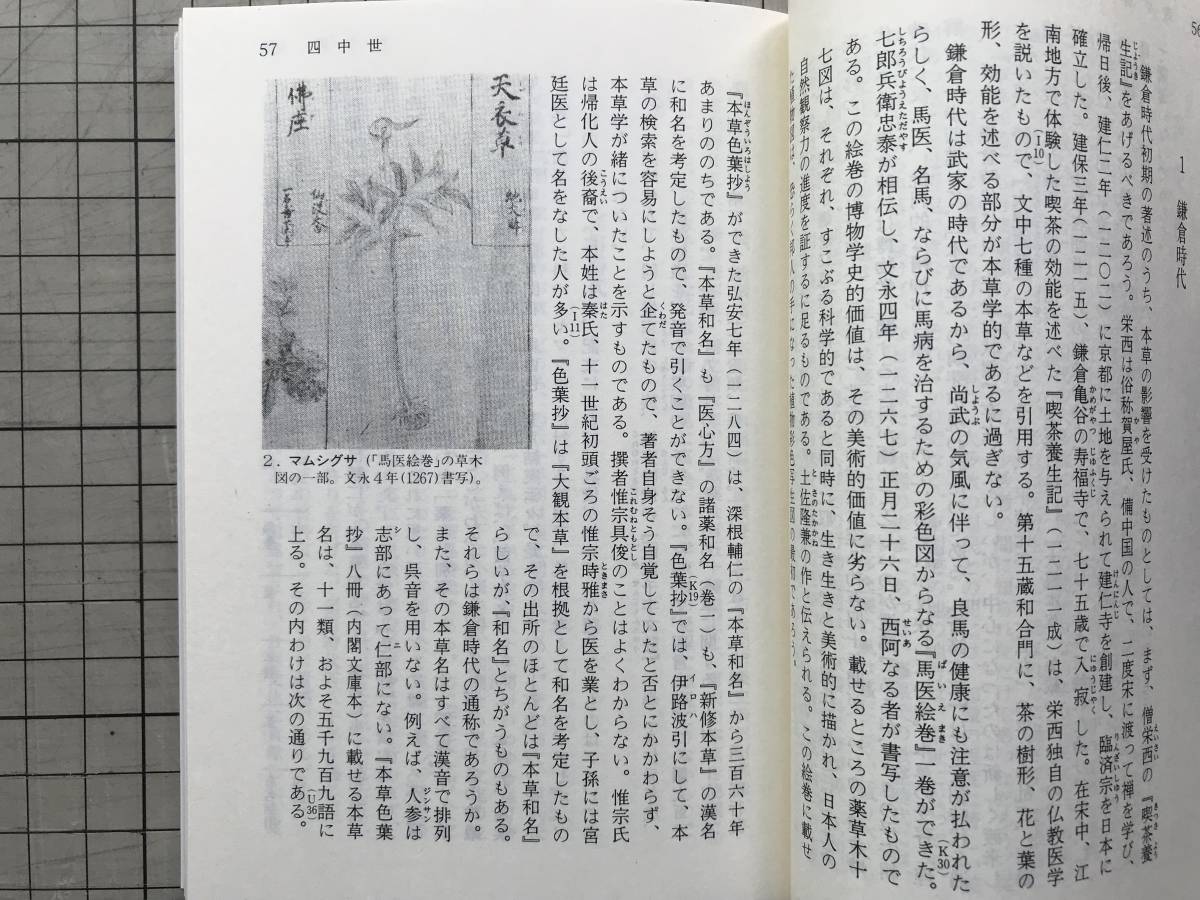 56
1 鎌倉時代
鎌倉時代初期の著述のうち、本草の影響を受けたものとしては、まず、僧栄西の『喫茶養
生記』をあげるべきであろう。栄西は俗称賀屋氏、備中国の人で、二度宋に渡って禅を学び、
帰日後、建仁二年（一二〇二）に京都に土地を与えられて建仁寺を創建し、臨済宗を日本に
確立した。建保三年（一二一五）、鎌倉亀谷の寿福寺で、七十五歳で入寂した。在宋中、江
南地方で体験した喫茶の効能を述べた『喫茶養生記』（一二一一成）は、栄西独自の仏教医学
を説いたもので、文中七種の本草などを引用する。第十五蔵和合門に、茶の樹形、花と葉の
形、効能を述べる部分が本草学的であるに過ぎない。(I10)
鎌倉時代は武家の時代であるから、尚武の気風に伴って、良馬の健康にも注意が払われた
らしく、馬医、名馬、ならびに馬病を治するための彩色図からなる『馬医絵巻』一巻ができた。(K30)
七郎兵衛忠泰が相伝し、文永四年（一二六七）正月二十六日、西阿なる者が書写したもので
ある。この絵巻の博物学史的価値は、その美術的価値に劣らない。載せるところの薬草木十
七図は、それぞれ、すこぶる科学的であると同時に、生き生きと美術的に描かれ、日本人の
自然観察力の進度を証するに足るものである。土佐隆兼の作と伝えられる。この絵巻に載せ
57 四 中 世
天衣草
佛座
2．マムシグサ（「馬医絵巻」の草木
図の一部。文永4年(1267)書写）。
『本草色葉抄』ができた弘安七年（一二八四）は、深根輔仁の『本草和名』から三百六十年
あまりののちである。『本草和名』も『医心方』の諸薬和名（巻一）も、『新修本草』の漢名
に和名を考定したもので、発音で引くことができない。(K19)『色葉抄』では、伊路波引にして、本
草の検索を容易にしようと企てたもので、著者自身そう自覚していたと否とにかかわらず、
本草学が緒についたことを示すものである。撰者惟宗具俊のことはよくわからない。惟宗氏
は帰化人の後裔で、本姓は秦氏、十一世紀初頭ごろの惟宗時雅から医を業とし、子孫には宮
廷医として名をなした人が多い。(I11)『色葉抄』は『大観本草』を根拠として和名を考定したもの
で、その出所のほとんどは『本草和名』
らしいが、『和名』とちがうものもある。
それらは鎌倉時代の通称であろうか。
また、その本草名はすべて漢音で排列
し、呉音を用いない。例えば、人参は
志部にあって仁部にない。『本草色葉
抄』八冊（内閣文庫本）に載せる本草
名は、十一類、およそ五千九百九語に
上る。その内わけは次の通りである。(U36)